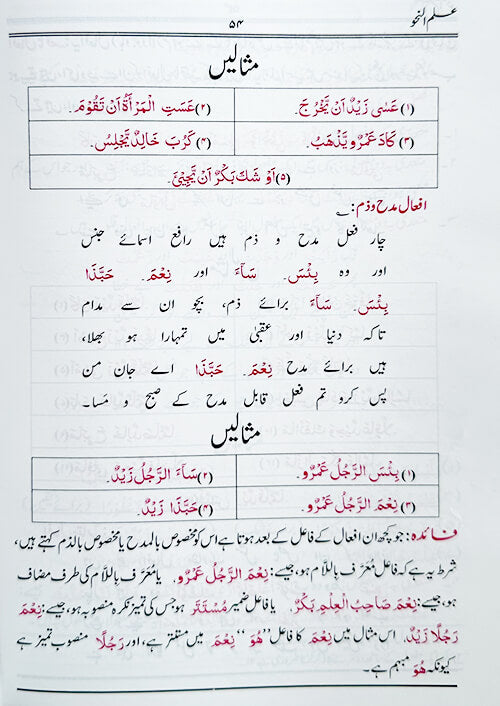 علم النحو
۵۴
مثالیں
(۱) عَسٰی زَیْدٌ اَنْ یَّخْرُجَ. (۲) عَسَتِ الْمَرْأَةُ اَنْ تَقُوْمَ.
(۳) کَادَ عَمْرٌو یَّذْهَبُ. (۴) کَرُبَ خَالِدٌ یَجْلِسُ.
(۵) اَوْ شَكَ بَكْرٌ اَنْ یَّجِیْئَ.
افعال مدح و ذم:
چار فعل مدح و ذم ہیں رافع اسمائے جنس
اور وہ بِئْسَ. سَآءَ اور نِعْمَ. حَبَّذَا
بِئْسَ. سَآءَ برائے ذم، بچو ان سے مدام
تاکہ دنیا اور عقبیٰ میں تمہارا ہو بھلا،
ہیں برائے مدح نِعْمَ. حَبَّذَا اے جان من
پس کرو تم فعل قابل مدح کے صبح و مَسا۔
مثالیں
(۱) بِئْسَ الرَّجُلُ عَمْرٌو. (۲) سَآءَ الرَّجُلُ زَیْدٌ.
(۳) نِعْمَ الرَّجُلُ عَمْرٌو. (۴) حَبَّذَا زَیْدٌ.
فائدہ: جو کچھ ان افعال کے فاعل کے بعد ہوتا ہے اس کو مخصوص بالمدح یا مخصوص بالذم کہتے ہیں،
شرط یہ ہے کہ فاعل مُعَرَّف بِاللَّام ہو، جیسے: نِعْمَ الرَّجُلُ عَمْرٌو. یا مُعَرَّف بِاللَّام کی طرف مضاف
ہو، جیسے: نِعْمَ صَاحِبُ الْعِلْمِ بَكْرٌ. یا فاعل ضمیر مُسْتَتَر ہو جس کی تمیز نکرہ منصوبہ ہو، جیسے: نِعْمَ
رَجُلًا زَیْدٌ. اس مثال میں نِعْمَ کا فاعل "هُوَ" نِعْمَ میں مستتر ہے، اور رَجُلًا منصوب تمیز ہے
کیونکہ هُوَ مبہم ہے۔